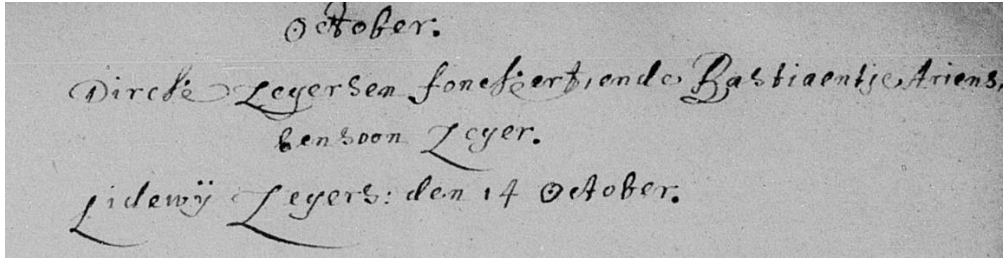 October.
Dircke Zeyersen fonckert, ende Bastiaentje Ariens,
een soon Zeyer.
Lidewÿ Zeyers: den 14 October.